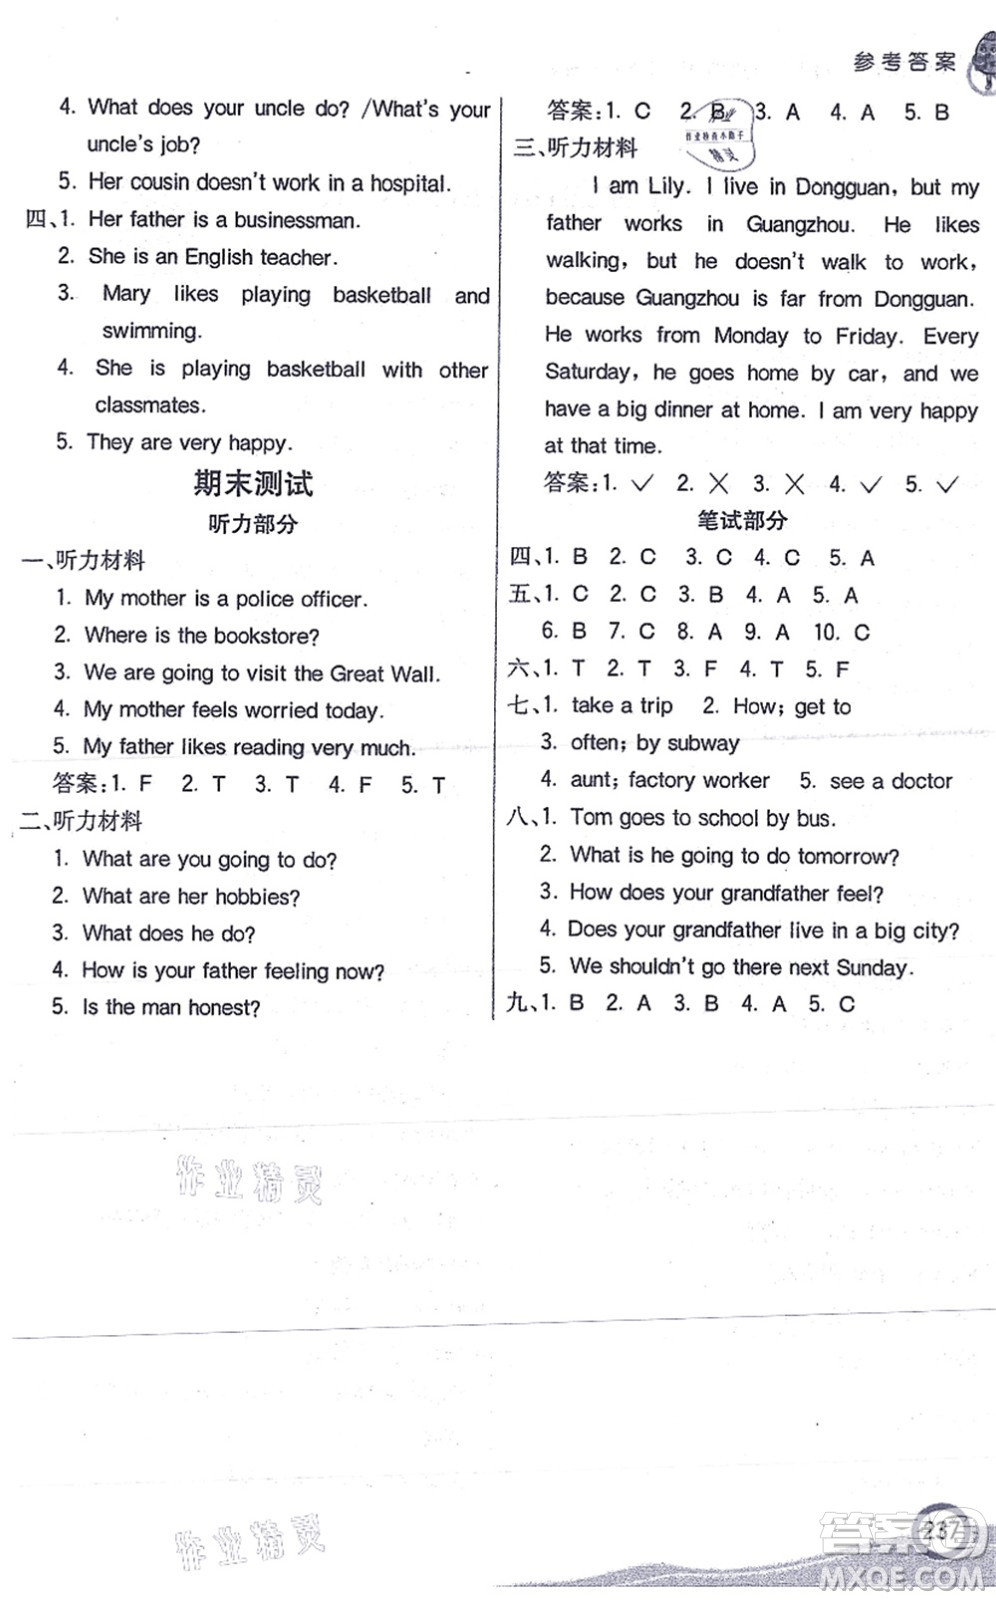 参考答案
4. What does your uncle do? /What's your
uncle's job?
5. Her cousin doesn't work in a hospital.
四、1. Her father is a businessman.
2. She is an English teacher.
3. Mary likes playing basketball and
swimming.
4. She is playing basketball with other
classmates.
5. They are very happy.
期末测试
听力部分
一、听力材料
1. My mother is a police officer.
2. Where is the bookstore?
3. We are going to visit the Great Wall.
4. My mother feels worried today.
5. My father likes reading very much.
答案:1. F 2. T 3. T 4. F 5. T
二、听力材料
1. What are you going to do?
2. What are her hobbies?
3. What does he do?
4. How is your father feeling now?
5. Is the man honest?
答案:1. C 2. B 3. A 4. A 5. B
三、听力材料
I am Lily. I live in Dongguan, but my
father works in Guangzhou. He likes
walking, but he doesn't walk to work,
because Guangzhou is far from Dongguan.
He works from Monday to Friday. Every
Saturday, he goes home by car, and we
have a big dinner at home. I am very happy
at that time.
答案:1. ✓ 2. ✗ 3. ✗ 4. ✓ 5. ✓
笔试部分
四、1. B 2. C 3. C 4. C 5. A
五、1. C 2. C 3. B 4. A 5. A
6. B 7. C 8. A 9. A 10. C
六、1. T 2. T 3. F 4. T 5. F
七、1. take a trip 2. How; get to
3. often; by subway
4. aunt; factory worker 5. see a doctor
八、1. Tom goes to school by bus.
2. What is he going to do tomorrow?
3. How does your grandfather feel?
4. Does your grandfather live in a big city?
5. We shouldn't go there next Sunday.
九、1. B 2. A 3. B 4. A 5. C
作业精灵
作业精灵
237
答案圈
MXQE.COM